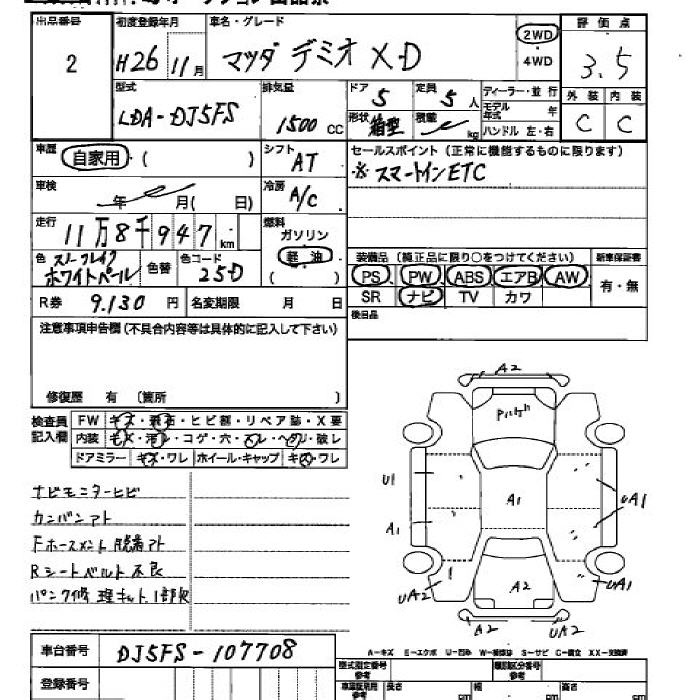 出品番号 初度登録年月 車名・グレード 2WD 評価点
2 H26 11月 マツダ デミオ XD 4WD 3.5
型式 排気量 ドア 5 定員 5人 ディーラー・並行 外装 内装
LDA-DJ5FS 1500 CC 形状 箱型 積載 kg モデル年式 年 C C
ハンドル 左・右
車歴 自家用・( ) シフト AT セールスポイント (正常に機能するものに限ります)
※スマートインETC
車検 年 月( 日) 冷房 A/C
走行 11万8千947km 燃料 ガソリン
軽油
( )
色 スノーフレイクホワイトパール 色替 色コード 25D
装備品 (純正品に限り○をつけてください) 新車保証書
PS PW ABS エアB AW 有・無
SR ナビ TV カワ
R券 9,130 円 名変期限 月 日 後日品
注意事項申告欄 (不具合内容等は具体的に記入して下さい)
修復歴 有 〔箇所 〕
検査員記入欄 FW キズ・飛石・ヒビ割・リペア跡・X要
内装 キズ・汚レ・コゲ・穴・スレ・ヘタリ・破レ
ドアミラー キズ・ワレ ホイール・キャップ キズ・ワレ
ナビモニターヒビ
カンバンアト
Fホースメント脱着アト
Rシートベルト不良
パンク修理キット1部欠
A2
U1 A1 A1 UA1
UA2 A2 UA1
A2 UA2
A-キズ E-エクボ U-凹み S-サビ C-腐食 XX-交換済
車台番号 DJ5FS-107708
登録番号
型式指定番号 参考 類別区分番号 参考
長さ cm 幅 cm 高さ cm